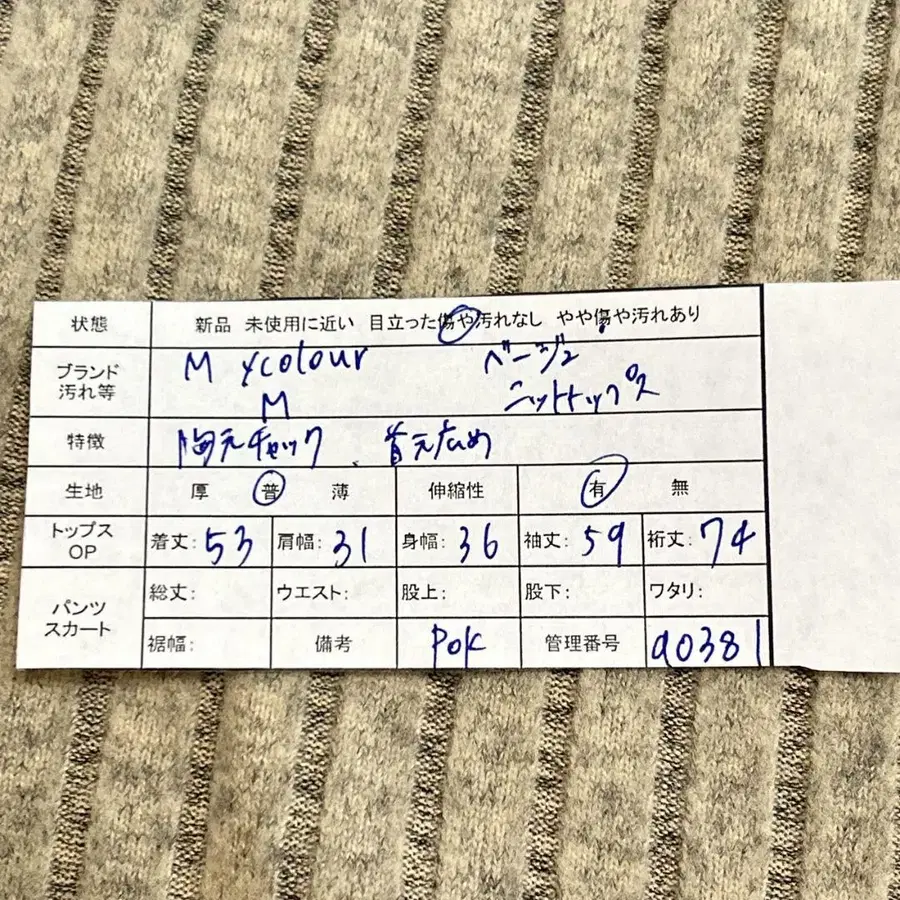 状態 新品 未使用に近い 目立った傷や汚れなし やや傷や汚れあり
ブランド 汚れ等 M ycolour ベージュ
M ニットトップス
特徴 胸元チャック、首元広め
生地 厚 普 薄 伸縮性 有 無
トップス OP 着丈: 53 肩幅: 31 身幅: 36 袖丈: 59 裄丈: 74
パンツ スカート 総丈: ウエスト: 股上: 股下: ワタリ:
裾幅: 備考 POK 管理番号 a0381